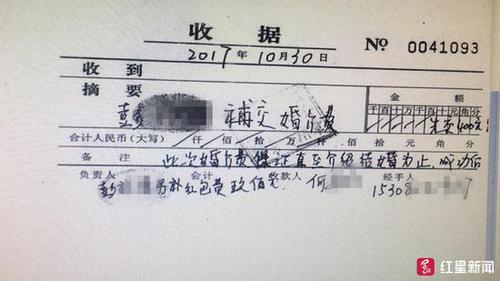 收据
2017年10月30日 № 0041093
收到
摘要 金额
千百十万千百十元角分
彭 补交婚介费 先交400元
合计人民币(大写) 仟 佰 拾 万 仟 佰 拾 元 角 分
备注 此次婚介费保证直至介绍结婚为止.成功后
负责人 会计 收款人 经手人
彭 另补红包费玖佰 何 15308
红星新闻